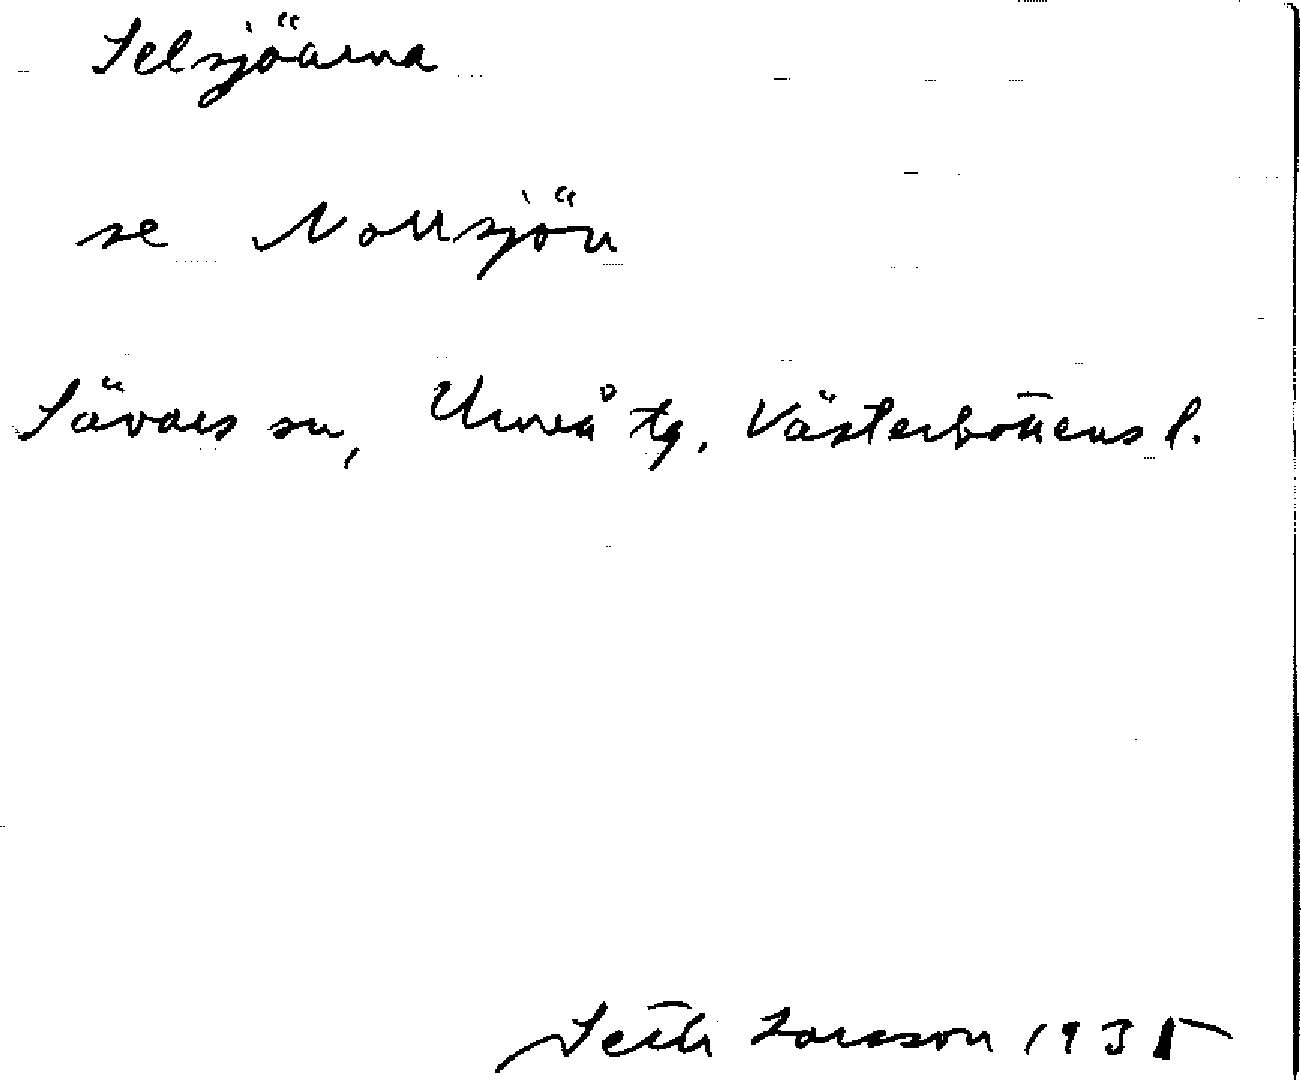 Selsjöarna
se Norrsjön
Sävars sn, Umeå tg. Västerbottens l.
Seth Larsson 1935